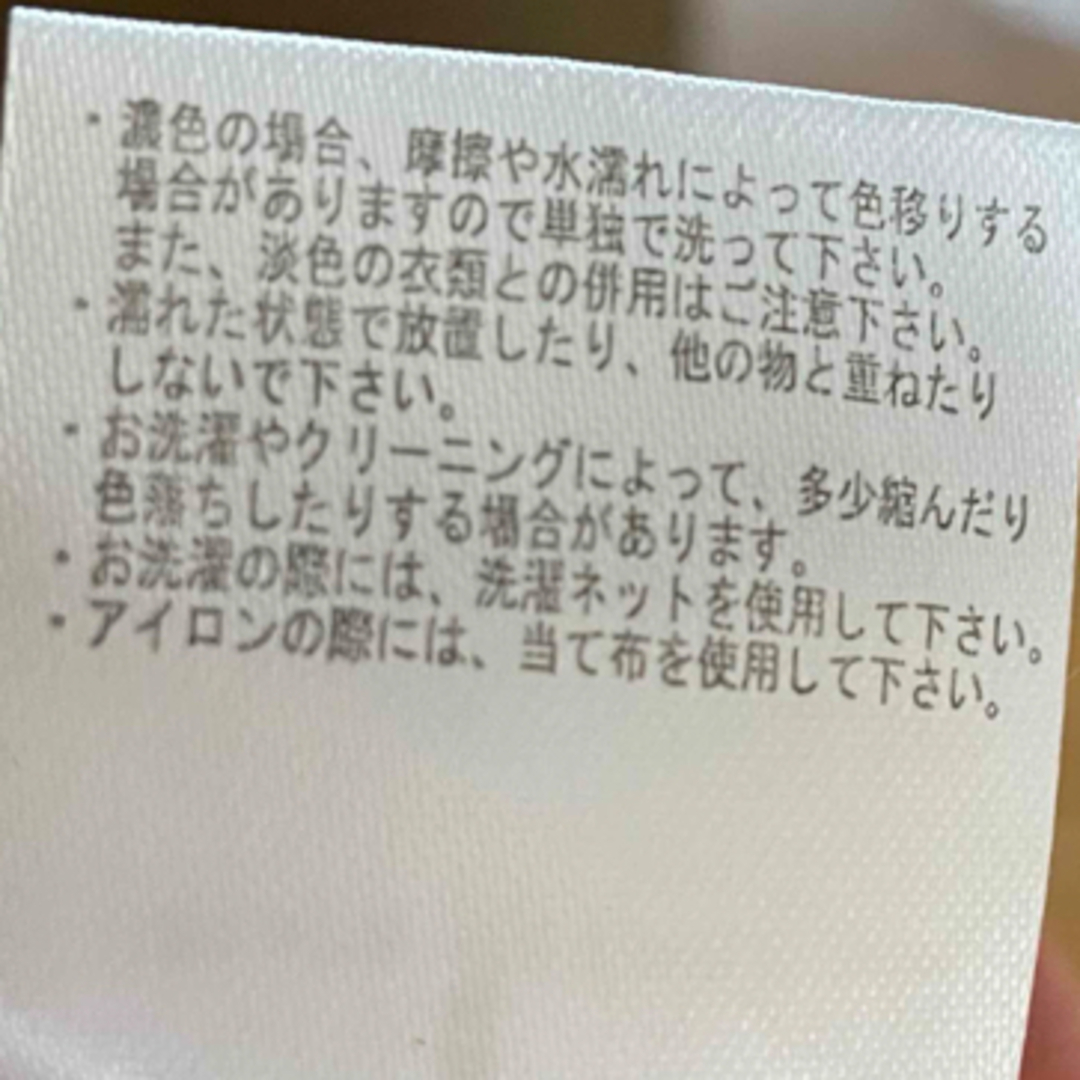 ・濃色の場合、摩擦や水濡れによって色移りする
場合がありますので単独で洗って下さい。
また、淡色の衣類との併用はご注意下さい。
・濡れた状態で放置したり、他の物と重ねたり
しないで下さい。
・お洗濯やクリーニングによって、多少縮んだり
色落ちしたりする場合があります。
・お洗濯の際には、洗濯ネットを使用して下さい。
・アイロンの際には、当て布を使用して下さい。